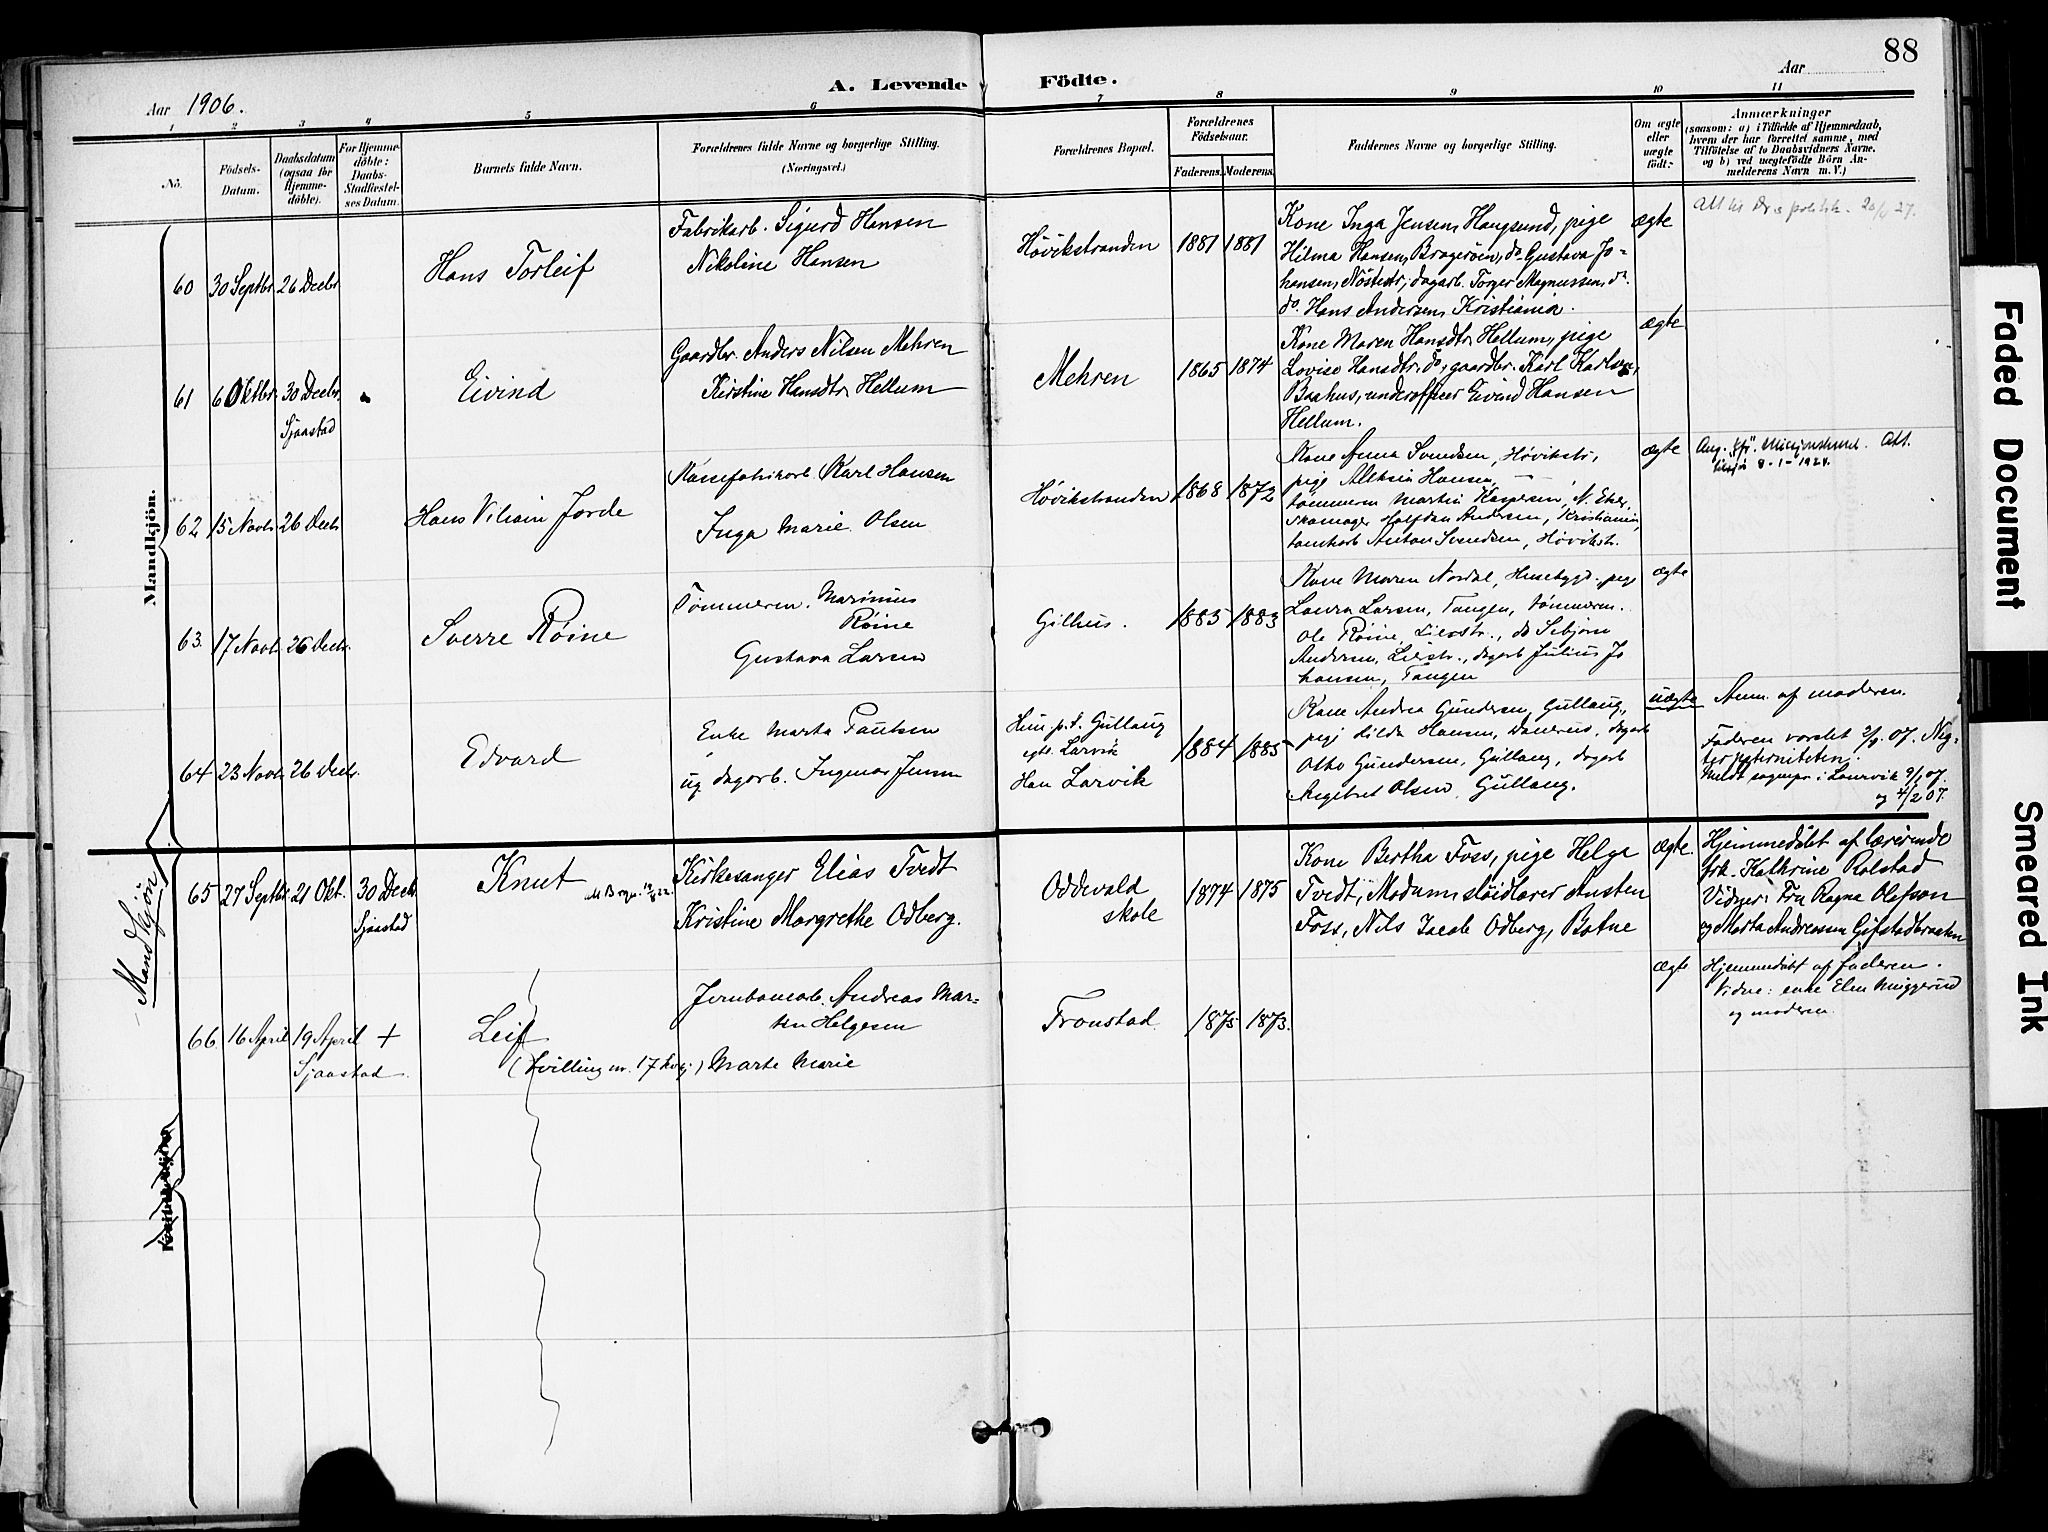 88
A. Levende Födte.
Aar 1906.
Aar
1 2 3 4 5 6 7 8 9 10 11
No.
Födsels-Datum.
Daabsdatum (ogsaa for Hjemme-döbte).
For Hjemme-döbte: Daabs-Stadfæstel-ses Datum.
Barnets fulde Navn.
Forældrenes fulde Navne og borgerlige Stilling.
(Næringsvei.)
Forældrenes Bopæl.
Forældrenes Födselsaar.
Faderens. Moderens.
Faddernes Navne og borgerlige Stilling.
Om ægte eller uægte födt.
Anmærkninger
(saasom: a) i Tilfælde af Hjemmedaab, hvem der har forrettet samme, med Tilföielse af to Daabsvidners Navne. og b) ved uægtefödte Börn An-melderens Navn m. V.)
Mandkjön.
60 30 Septbr. 26 Decbr.
Hans Torleif
Fabrikarb. Sigurd Hansen
Nikoline Hansen
Høvikstranden 1881 1881
Kone Inga Jensen, Haugsund, pige
Hilma Hansen, Bragerøen, do Gustava Jo-
hansen, Nøstedtr., dagarb. Torger Magnussen, do
do. Hans Andersen, Kristiania.
ægte
Att til politik. 20/4 27.
61 6 Oktbr. 30 Decbr.
Sjaastad
Eivind
Gaardbr. Anders Nilsen Mehren
Kirstine Hansdtr. Hellum
Mehren 1865 1874
Kone Maren Hansdtr. Hellum, pige
Lovise Hansdtr. do, gaardbr. Karl Karlsen,
Baahus, underofficer Eivind Hansen
Hellum.
ægte
62 15 Novbr. 26 Decbr.
Hans Viliam Jorde
Karl Hansen
Inga Marie Olsen
Høvikstranden 1868 1872
Kone Anna Svendsen, Høvikstr.,
pige Hansen, —
tømmerm. Martin Kaspersen, N. Eker,
Skomager Halfdan Andersen, Kristiania,
Anton Svendsen, Høvikstr.
ægte
Att.
8-1-1924.
63. 17 Novbr. 26 Decbr.
Sverre Røine
Tømmerm. Marinius
Røine
Gustava Larsen
Gilhus. 1883 1883
Kone Maren Nordal, Husebygd. pige
Laura Larsen, Tangen, tømmerm.
Ole Røine, Lierstr., do
Andersen, Lierstr., dagarb Julius Jo
hansen, Tangen
ægte
64 23 Novbr. 26 Decbr.
Edvard
Enke Marta Paulsen
og dagarb. Ingmar Jensen
Hun p.t. Gullaug
egtl. Larvik
Han Larvik
1884 1885
Kone Andrea Gundersen, Gullaug,
pige Hilda Hansen, dagarb
Otto Gundersen, Gullaug, dagarb
Engebret Olsen, Gullaug.
uægte
Anm. af moderen.
Faderen varslet 2/1. 07. Neg-
ter paterniteten.
Meldt sognepr. i Laurvik 9/1 07.
og 4/2 07.
Mandkjön
65 27 Septbr. 21 Okt. 30 Decbr.
Sjaastad
Knut
Kirkesanger Elias Tvedt
Kristine Margrethe Odberg.
Oddevald
skole
1874 1875
Kone Bertha Foss, pige Helga
Tvedt, Modum, sløidlærer Austen
Foss, Nils Jacob Odberg, Botne
ægte.
Hjemmedøbt af lærerinde
frk. Kathrine Rolstad
Vidner: Fru Ragna Olafson
og Marta Andreassen Gifstadbraaten
66. 16 April 19 April +
Sjaastad
Leif
(tvilling nr. 17 kvkj)
Jernbanearb. Andreas Mar-
tin Helgesen
Marte Marie
Tronstad 1875 1873.
ægte
Hjemmedøbt af faderen.
Vidne: enke Elen Muggerud
og moderen.
Faded Document
Smeared Ink